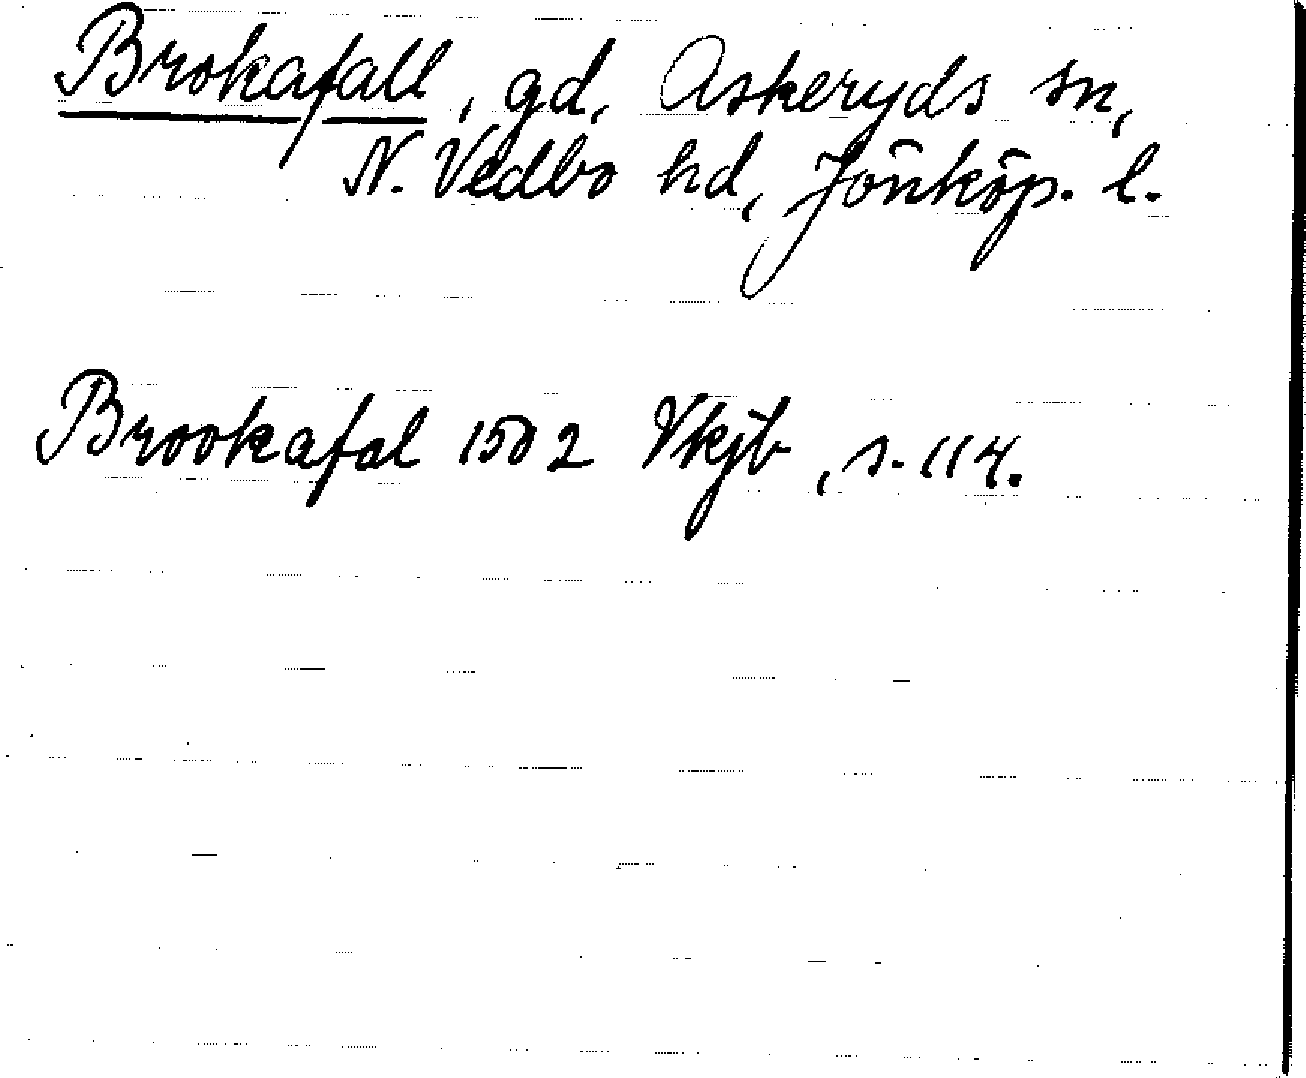 Brokafall, gd, Askeryds sn,
N. Vedbo hd, Jönköp. l.
Brookafal 1502 Vkjb, s. 114.